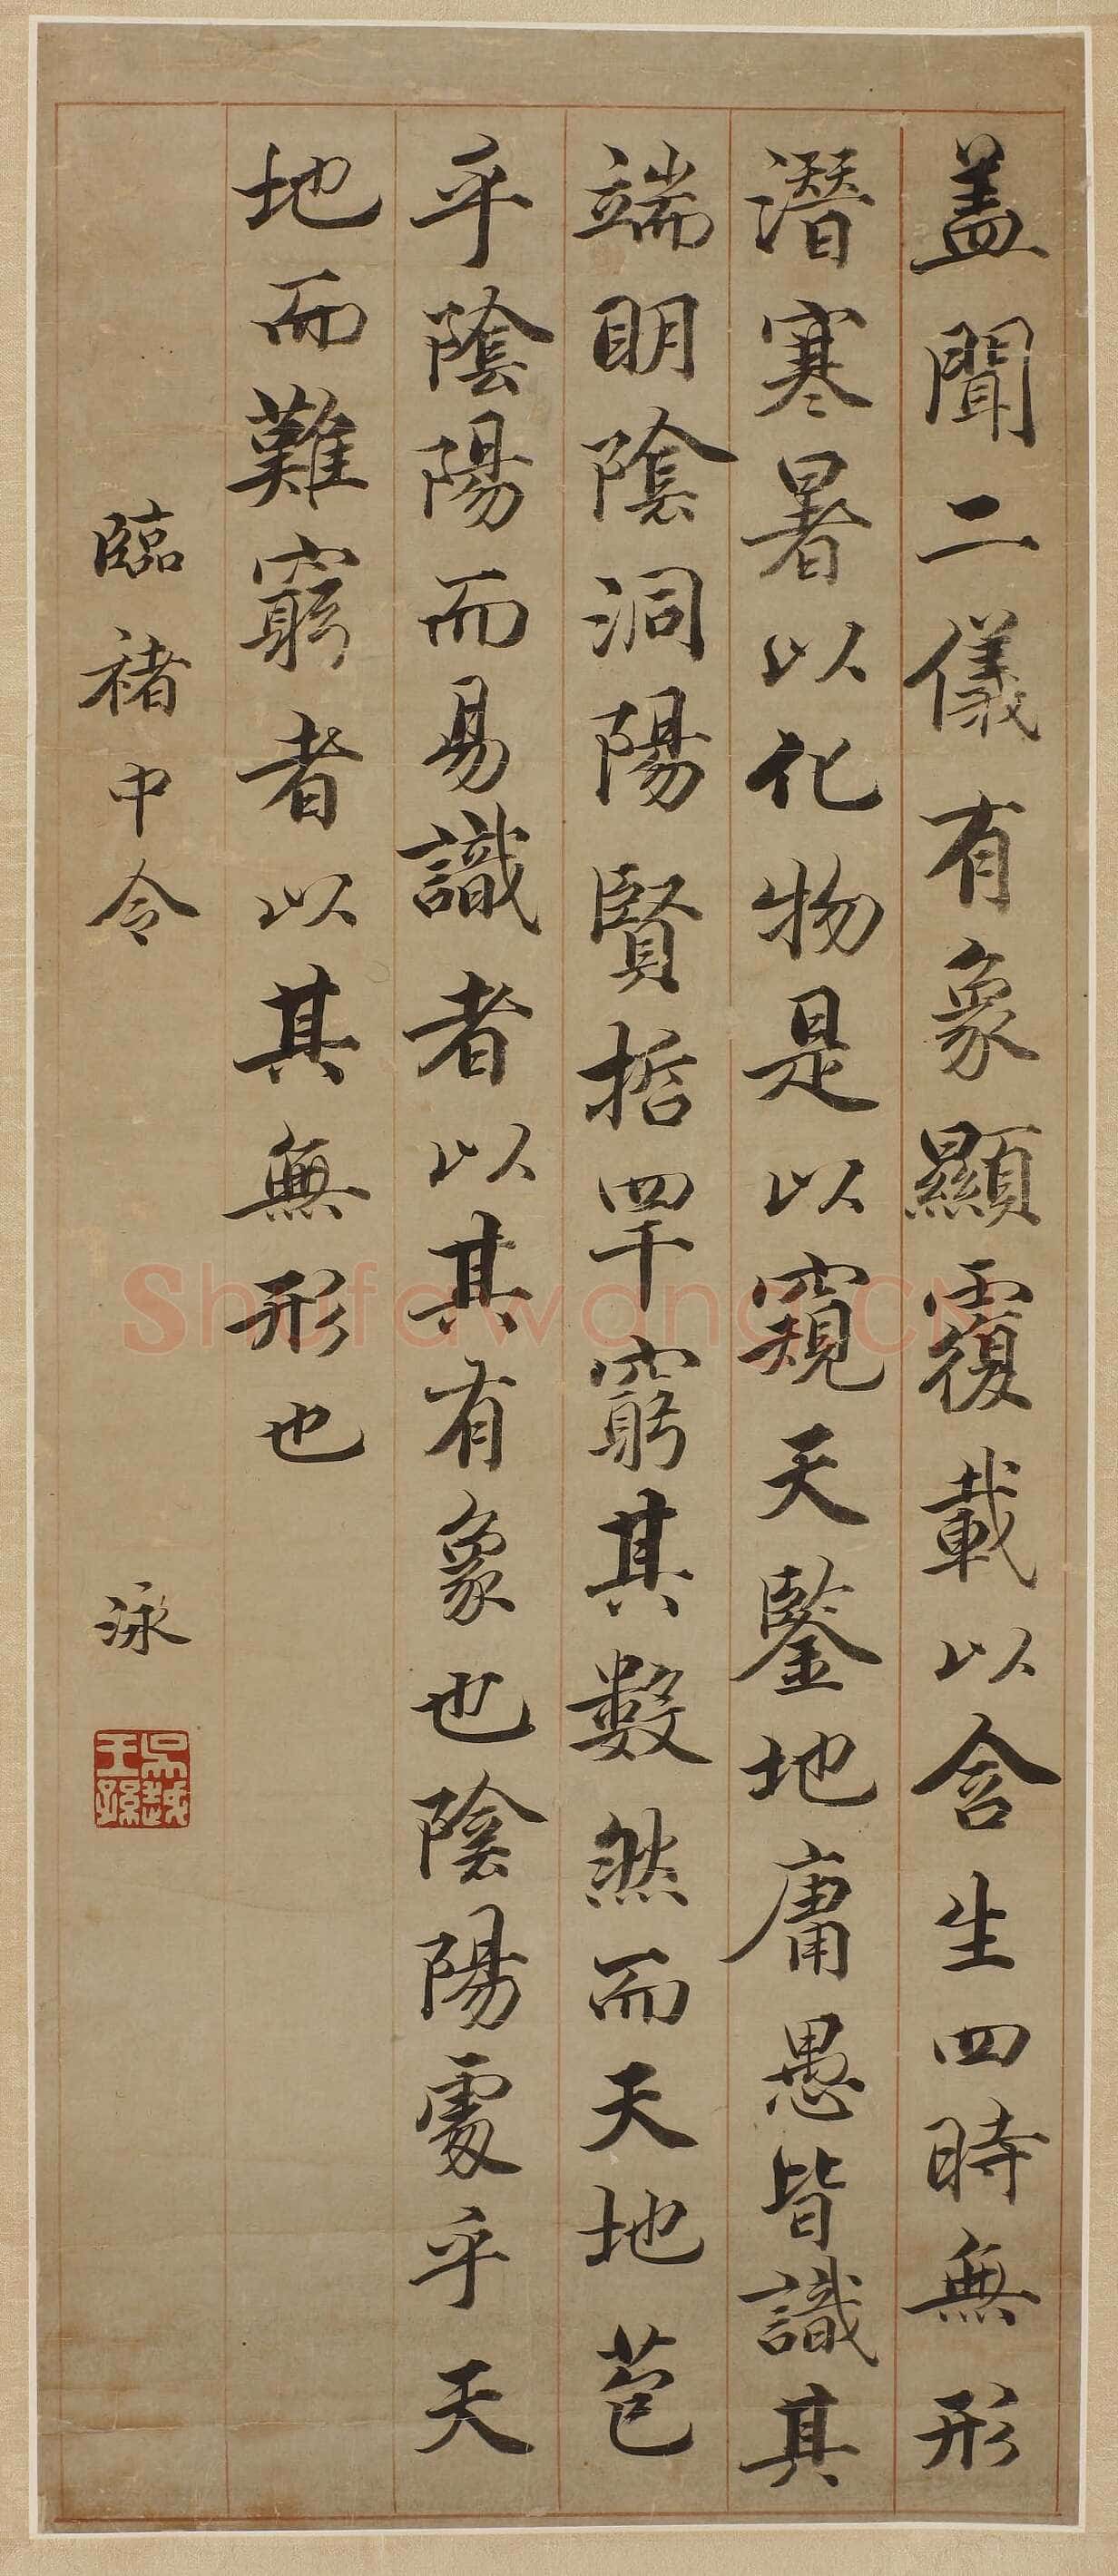 蓋聞二儀有象顯覆載以含生四時無形
潛寒暑以化物是以窺天鑒地庸愚皆識其
端明陰洞陽賢哲罕窮其數然而天地苞
乎陰陽而易識者以其有象也陰陽處乎天
地而難窮者以其無形也
臨褚中令 泳
吳越王孫
Shufawang.CN